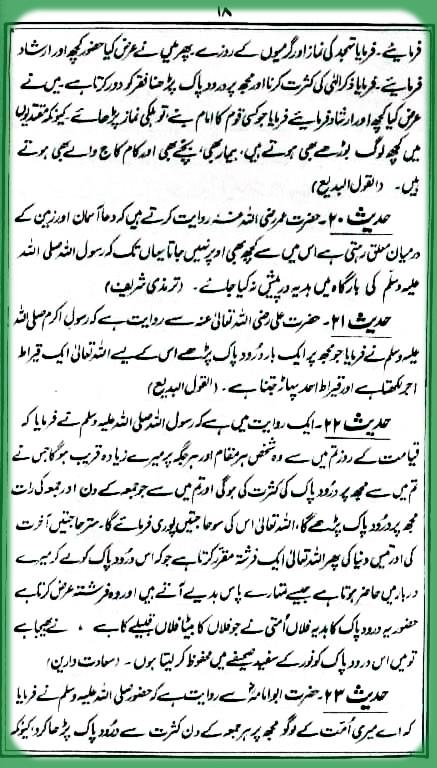 ۱۸
فرمائیے۔ فرمایا تہجد کی نماز اور گرمیوں کے روزے پھر میں نے عرض کیا حضور کچھ اور ارشاد
فرمائیے۔ فرمایا ذکر الٰہی کی کثرت کرنا اور مجھ پر درود پاک پڑھنا فقر کو دور کرتا ہے۔ میں نے
عرض کیا کچھ اور ارشاد فرمایئے فرمایا جو کسی قوم کا امام بنے تو ہلکی نماز پڑھائے۔ کیونکہ مقتدیوں
میں کچھ لوگ بوڑھے بھی ہوتے ہیں، بیمار بھی، بچے بھی اور کام کاج والے بھی ہوتے
ہیں۔ (القول البدیع)
حدیث ۲۰۔ حضرت عمر رضی اللہ عنہ روایت کرتے ہیں کہ دعا آسمان اور زمین کے
درمیان معلق رہتی ہے اس میں سے کچھ بھی اوپر نہیں جاتا یہاں تک کہ رسول اللہ صلی اللہ
علیہ وسلم کی بارگاہ میں ہدیہ درپیش نہ کیا جائے۔ (ترمذی شریف)
حدیث ۲۱۔ حضرت علی رضی اللہ تعالیٰ عنہ سے روایت ہے کہ رسول اکرم صلی اللہ
علیہ وسلم نے فرمایا جو مجھ پر ایک بار درود پاک پڑھے اس کے لیے اللہ تعالیٰ ایک قیراط
اجر لکھتا ہے اور قیراط احد پہاڑ جتنا ہے۔ (القول البدیع)
حدیث ۲۲۔ ایک روایت میں ہے کہ رسول اللہ صلی اللہ علیہ وسلم نے فرمایا کہ
قیامت کے روز تم میں سے وہ شخص ہر مقام اور ہر جگہ پر میرے زیادہ قریب ہوگا جس نے
تم میں سے مجھ پر درود پاک کی کثرت کی ہوگی اور تم میں سے جو جمعہ کے دن اور جمعہ کی رات
مجھ پر درود پاک پڑھے گا، اللہ تعالیٰ اس کی سو حاجتیں پوری فرمائے گا۔ ستر حاجتیں آخرت
کی اور تیس دنیا کی پھر اللہ تعالیٰ ایک فرشتہ مقرر کرتا ہے جو کہ اس درود پاک کو لے کر میرے
دربار میں حاضر ہوتا ہے جیسے تمہارے پاس ہدیے آتے ہیں اور وہ فرشتہ عرض کرتا ہے
حضور یہ درود پاک کا ہدیہ فلاں امتی نے جو فلاں کا بیٹا فلاں قبیلے کا ہے، نے بھیجا ہے
تو میں اس درود پاک کو نور کے سفید صحیفے میں محفوظ کر لیتا ہوں۔ (سعادت دارین)
حدیث ۲۳۔ حضرت ابوامامہؓ سے روایت ہے کہ حضور صلی اللہ علیہ وسلم نے فرمایا
کہ اے میری امت کے لوگو مجھ پر ہر جمعہ کے دن کثرت سے درود پاک پڑھا کرو، کیونکہ